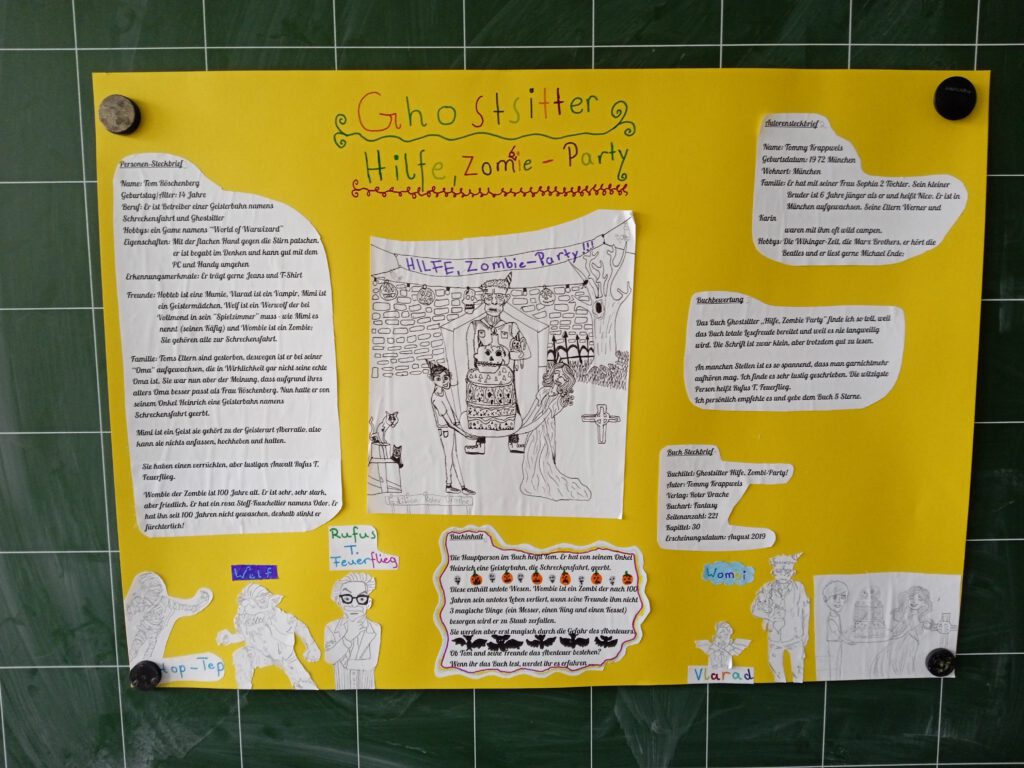 Ghostsitter
Hilfe, Zombie - Party
Personen-Steckbrief
Name: Tom Röschenberg
Geburtstag/Alter: 14 Jahre
Beruf: Er ist Betreiber einer Geisterbahn namens
Schreckensfahrt und Ghostsitter
Hobbys: ein Game namens "World of Warwizard"
Eigenschaften: Mit der flachen Hand gegen die Stirn patschen,
er ist begabt im Denken und kann gut mit dem
PC und Handy umgehen
Erkennungsmerkmale: Er trägt gerne Jeans und T-Shirt
Freunde: Hobteb ist eine Mumie, Vlarad ist ein Vampir, Mimi ist
ein Geistermädchen, Welf ist ein Werwolf der bei
Vollmond in sein "Spielzimmer" muss - wie Mimi es
nennt (seinen Käfig) und Wombie ist ein Zombie;
Sie gehören alle zur Schreckensfahrt.
Familie: Toms Eltern sind gestorben, deswegen ist er bei seiner
"Oma" aufgewachsen, die in Wirklichkeit gar nicht seine echte
Oma ist. Sie war nun aber der Meinung, dass aufgrund ihres
alters Oma besser passt als Frau Röschenberg. Nun hatte er von
seinem Onkel Heinrich eine Geisterbahn namens
Schreckensfahrt geerbt.
Mimi ist ein Geist sie gehört zu der Geisterart Aberratio, also
kann sie nichts anfassen, hochheben und halten.
Sie haben einen verrückten, aber lustigen Anwalt Rufus T.
Feuerflieg.
Wombie der Zombie ist 100 Jahre alt. Er ist sehr, sehr stark,
aber friedlich. Er hat ein rosa Stoff-Kuscheltier namens Odor. Er
hat ihn seit 100 Jahren nicht gewaschen, deshalb stinkt er
fürchterlich!
HILFE, Zombie-Party!!!
Autorensteckbrief
Name: Tommy Krappweis
Geburtsdatum: 1972 München
Wohnort: München
Familie: Er hat mit seiner Frau Sophia 2 Töchter. Sein kleiner
Bruder ist 6 Jahre jünger als er und heißt Nico. Er ist in
München aufgewachsen. Seine Eltern Werner und
Karin
waren mit ihm oft wild campen.
Hobbys: Die Wikinger-Zeit, die Marx Brothers, er hört die
Beatles und er liest gerne Michael Ende;
Buchbewertung
Das Buch Ghostsitter „Hilfe, Zombie Party" finde ich so toll, weil
das Buch totale Lesefreude bereitet und weil es nie langweilig
wird. Die Schrift ist zwar klein, aber trotzdem gut zu lesen.
An manchen Stellen ist es so spannend, dass man garnichtmehr
aufhören mag. Ich finde es sehr lustig geschrieben. Die witzigste
Person heißt Rufus T. Feuerflieg.
Ich persönlich empfehle es und gebe dem Buch 5 Sterne.
Buch Steckbrief
Buchtitel: Ghostsitter Hilfe, Zombi-Party!
Autor: Tommy Krappweis
Verlag: Roter Drache
Buchart: Fantasy
Seitenanzahl: 221
Kapittel: 30
Erscheinungsdatum: August 2019
Buchinhalt
Die Hauptperson im Buch heißt Tom. Er hat von seinem Onkel
Heinrich eine Geisterbahn, die Schreckensfahrt, geerbt.
Diese enthält untote Wesen. Wombie ist ein Zombi der nach 100
Jahren sein untotes Leben verliert, wenn seine Freunde ihm nicht
3 magische Dinge (ein Messer, einen Ring und einen Kessel)
besorgen wird er zu Staub zerfallen.
Sie werden aber erst magisch durch die Gefahr des Abenteuers.
Ob Tom und seine Freunde das Abenteuer bestehen?
Wenn ihr das Buch lest, werdet ihr es erfahren
Welf
Rufus
T.
Feuerflieg
Wombi
Vlarad